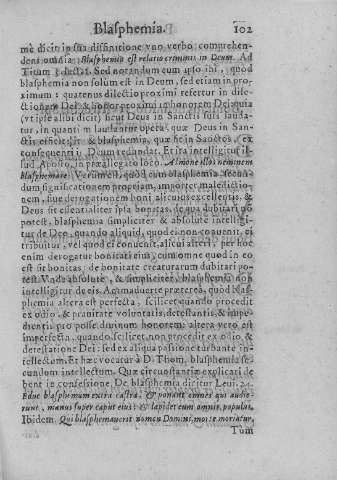 Blasphemia. 102
mè dicit in sua diffinitione vno verbo comprehen-
dens omnia: Blasphemia est relatio criminis in Deum. Ad
Titum 3. dicta. Sed notandum cum ipso ibi, quod
blasphemia non solùm est in Deum, sed etiam in proxi-
mum: quatenus dilectio proximi refertur in dile-
ctionem Dei: & honor proximi in honorem Dei: quia
(vt ipse alibi dicit) sicut Deus in Sanctis suis lauda-
tur, in quantum laudantur opera, quæ Deus in San-
ctis efficit: sic & blasphemia, quæ fit in Sanctos, ex
consequenti in Deum redundat. Et ita intelligitur il-
lud Apostoli, in præallegato loco. Admone illos neminem
blasphemare. Verùm est, quòd cum blasphemia secun-
dum significationem propriam, importet maledictio-
nem, siue derogationem boni alicuius excellentis, &
Deus sit essentialiter ipsa bonitas, de qua dubitari po-
test, blasphemia simpliciter & absolutè intelligi-
tur de Deo, quando aliquid, quod ei non conuenit, ei
tribuitur, vel quod ei conuenit, alicui alteri, per hoc
enim derogatur bonitati eius, cum omne quod in eo
est sit bonitas: de bonitate creaturarum dubitari po-
test. Vnde absolutè, & simpliciter, blasphemia non
intelligitur de eis. Animaduerte prætereà, quòd blas-
phemia altera est perfecta, scilicet quando procedit
ex odio, & prauitate voluntatis, detestantis, & impe-
dientis pro posse diuinum honorem: altera verò est
imperfecta, quando scilicet non procedit ex odio &
detestatione Dei: sed ex aliqua passione turbante in-
tellectum. Et hæc vocatur à D. Thom. blasphemia se-
cundum intellectum. Quæ circunstantiæ explicari de-
bent in confessione. De blasphemia dicitur Leui. 24.
Educ blasphemum extra castra, & ponant omnes qui audie-
runt, manus super caput eius: & lapidet eum omnis populus.
Ibidem. Qui blasphemauerit nomen Domini, morte moriatur,
Tùm